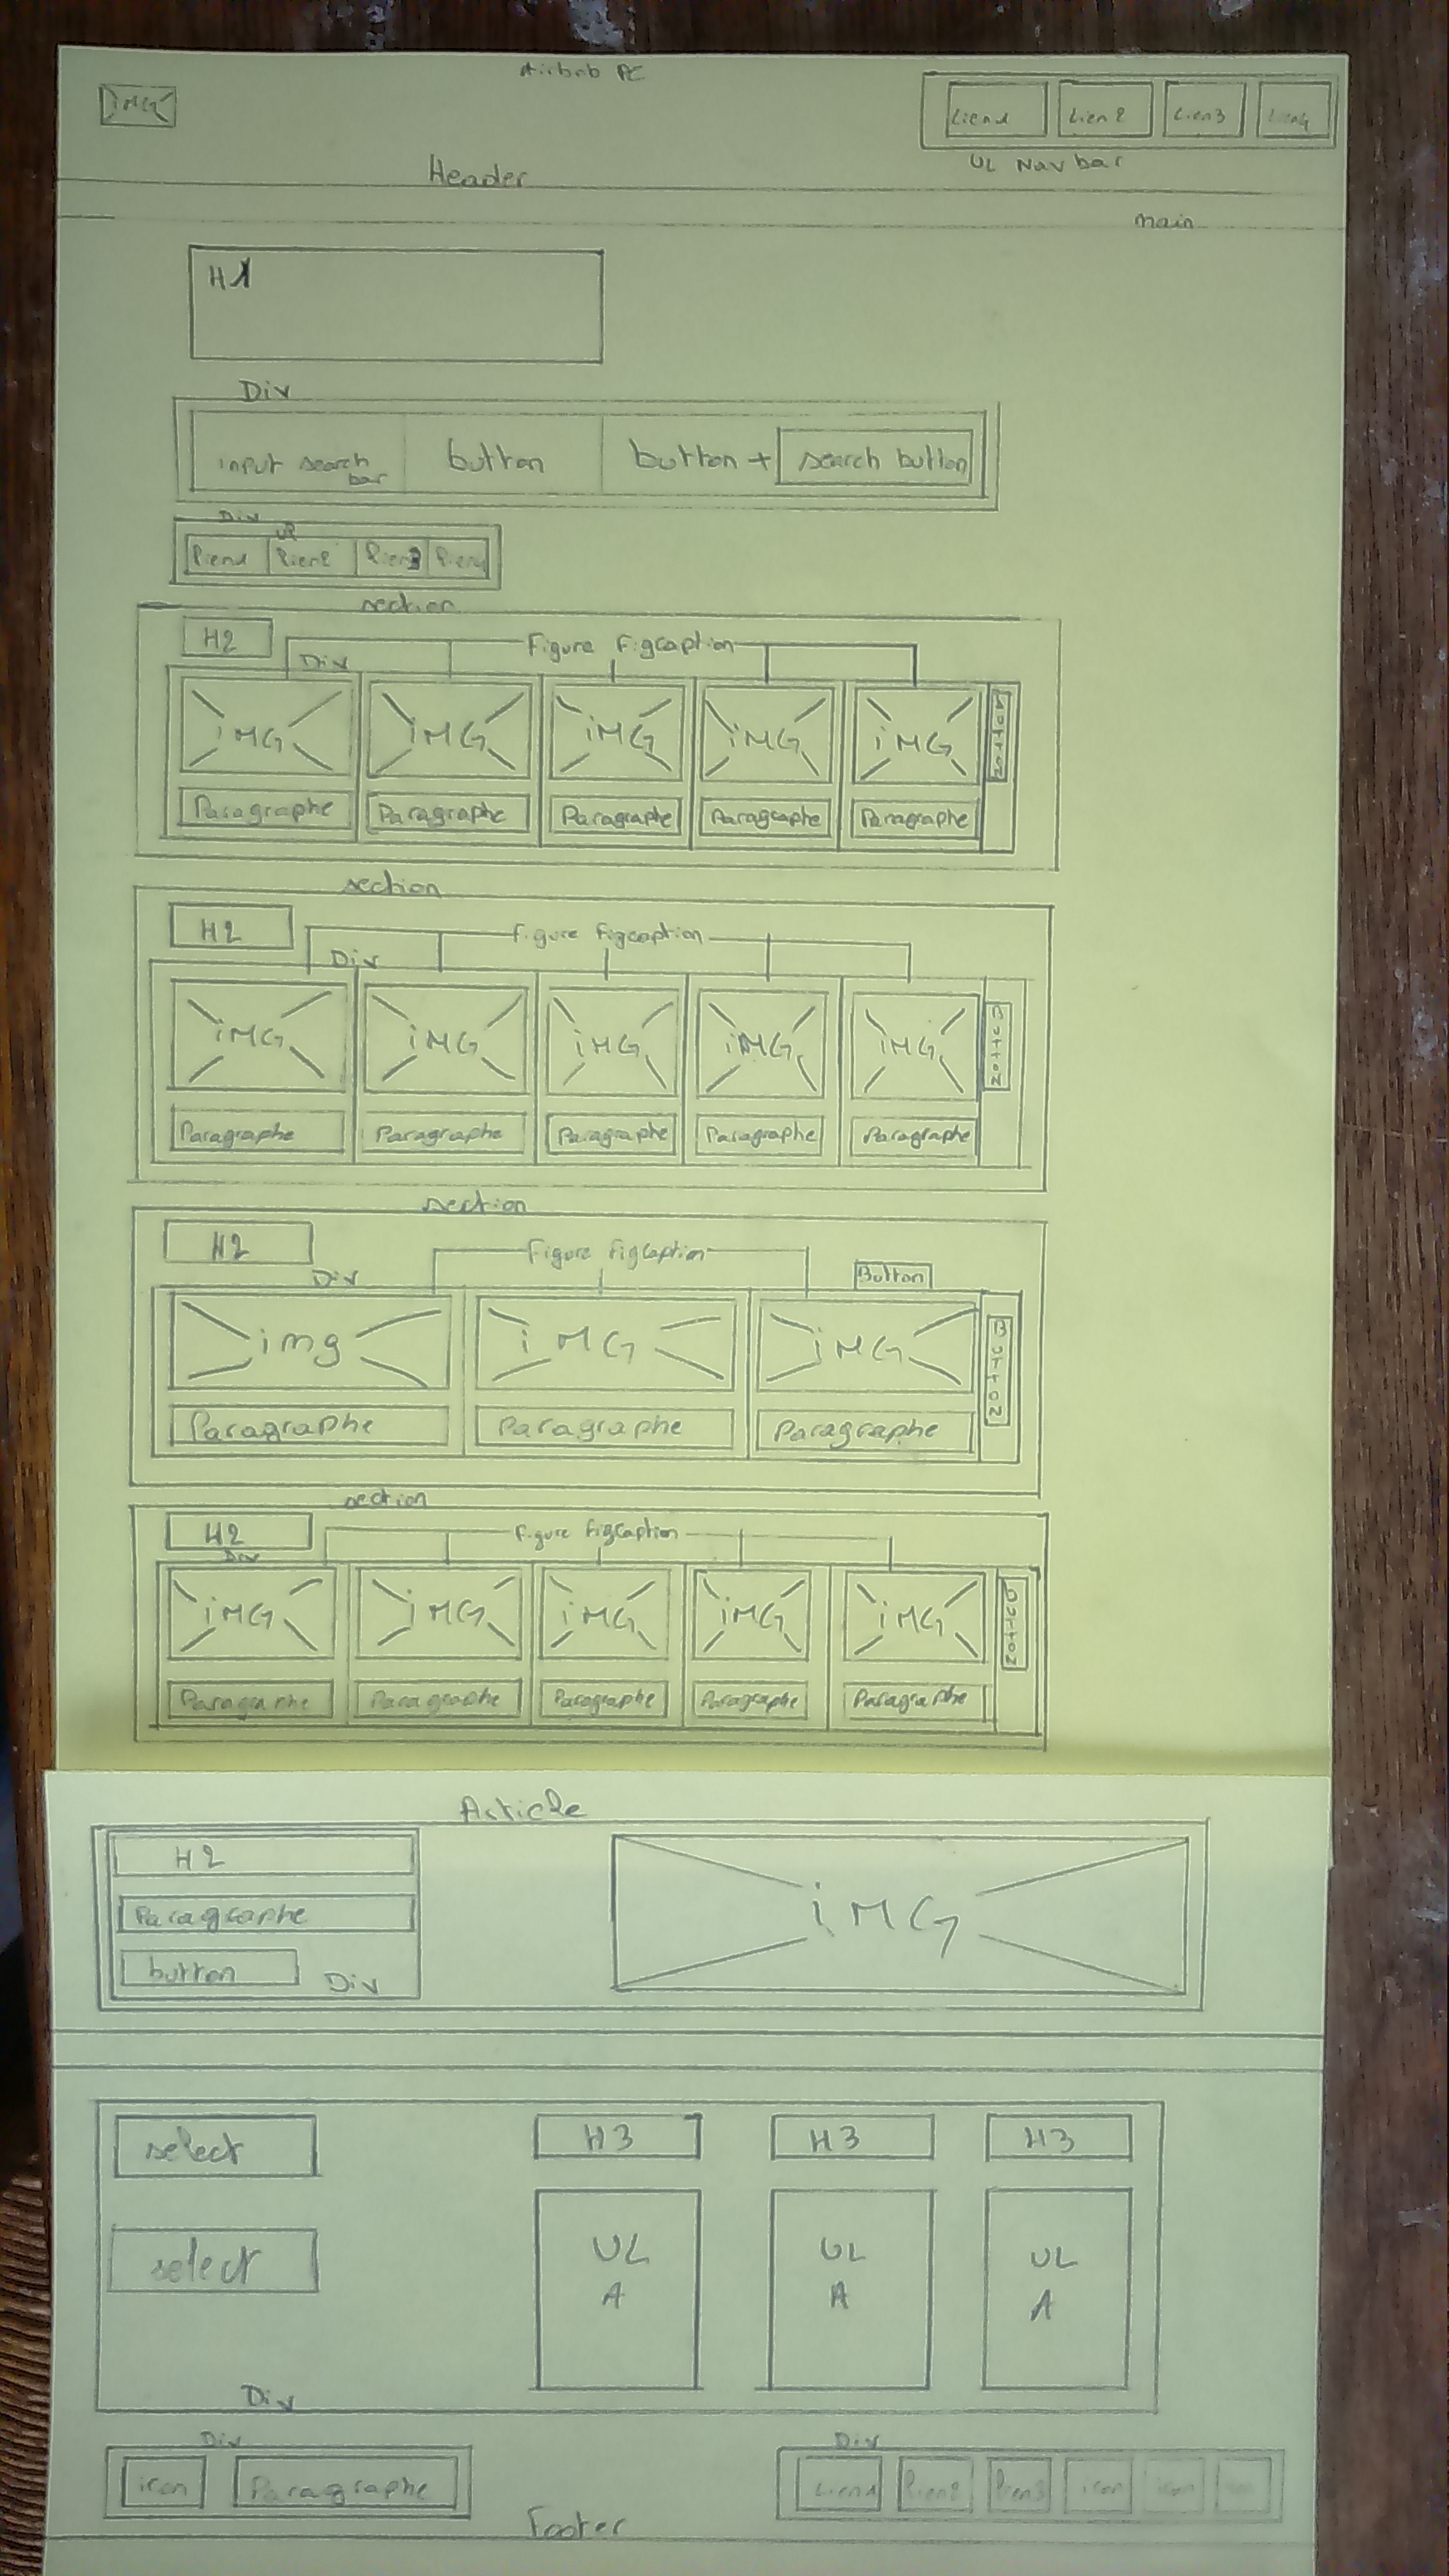 Airbnb PC
iMG
Lien1 Lien2 Lien3 Lien4
UL Navbar
Header
main
H1
Div
input search bar button button + search button
Div
UL
lien1 lien2 lien3 lien4
section
H2 Figure Figcaption
Div
iMG iMG iMG iMG iMG button
Paragraphe Paragraphe Paragraphe Paragraphe Paragraphe
section
H2 figure figcaption
Div
iMG iMG iMG iMG iMG
Paragraphe Paragraphe Paragraphe Paragraphe Paragraphe
section
H2 Figure Figcaption
Div Button
img iMG iMG
Paragraphe Paragraphe Paragraphe
section
H2 figure figcaption
Div
iMG iMG iMG iMG iMG
Paragraphe Paragraphe Paragraphe Paragraphe Paragraphe
Article
H2
Paragraphe
button Div
iMG
select H3 H3 H3
select UL UL UL
A A A
Div
Div Div
icon Paragraphe Lien1 lien2 lien3 icon icon
Footer